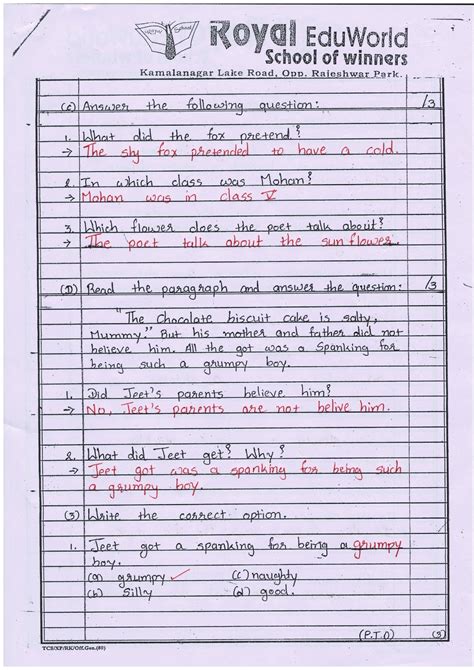 Royal School
Royal EduWorld
School of winners
Kamalanagar Lake Road, Opp. Rajeshwar Park.
(C) Answer the following question: /3
1. What did the fox pretend?
→ The sly fox pretended to have a cold.
2. In which class was Mohan?
→ Mohan was in class V
3. Which flower does the poet talk about?
→ The poet talk about the sun flower.
(D) Read the paragraph and answer the question: /3
"The Chocolate biscuit cake is salty,
Mummy." But his mother and father did not
believe him. All the got was a Spanking for
being such a grumpy boy.
1. Did Jeet's parents believe him?
→ No, Jeet's parents are not belive him.
2. What did Jeet get? Why?
→ Jeet got was a spanking for being such
a grumpy boy.
(3) Write the correct option.
1. Jeet got a spanking for being a grumpy
boy.
(a) grumpy ✓ (c) naughty
(b) Silly (d) good.
(P.T.O) (3)